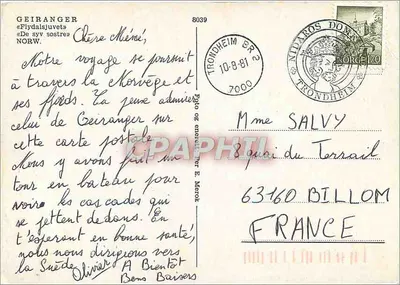 GEIRANGER
«Flydalsjuvet»
«De syv søstre»
NORW.
8039
Chère Mémé,
Notre voyage se poursuit
à travers la Norvège et
ses fjords. Tu peux admirer
celui de Geiranger sur
cette carte postale.
Nous y avons fait un
tour en bateau pour
voir les cascades qui
se jettent dedans. En
t'espérant en bonne santé,
nous nous dirigeons vers
la Suède. Olivier
A Bientôt
Bons Baisers
TRONDHEIM BR. 2
10-8-81
7000
NIDAROS DOM
TRONDHEIM
NORGE
Mme SALVY
8 quai du Terrail
63160 BILLOM
FRANCE
DELCAMPHTI